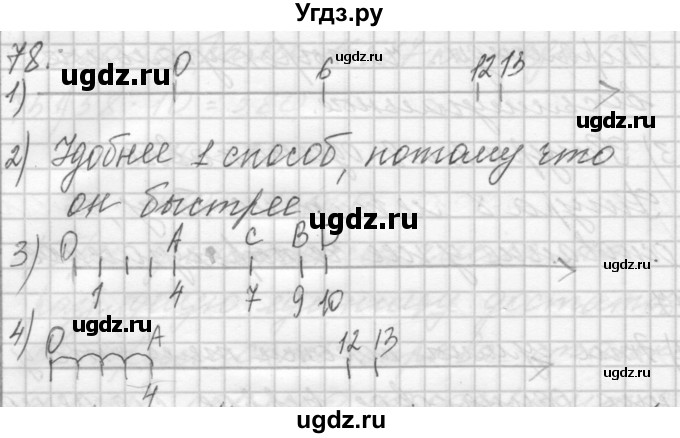 Угдз.ру
78.
ugdz.ru
0 6 12 13
1)
2) Удобнее 1 способ, потому что
он быстрее
3) 0 A C B D
1 4 7 9 10
4) 0 A 12 13
4
ugdz.ru
ugdz.ru
ugdz.ru
ugdz.ru
ugdz.ru
ugdz.ru
ugdz.ru
ugdz.ru
ugdz.ru
ugdz.ru